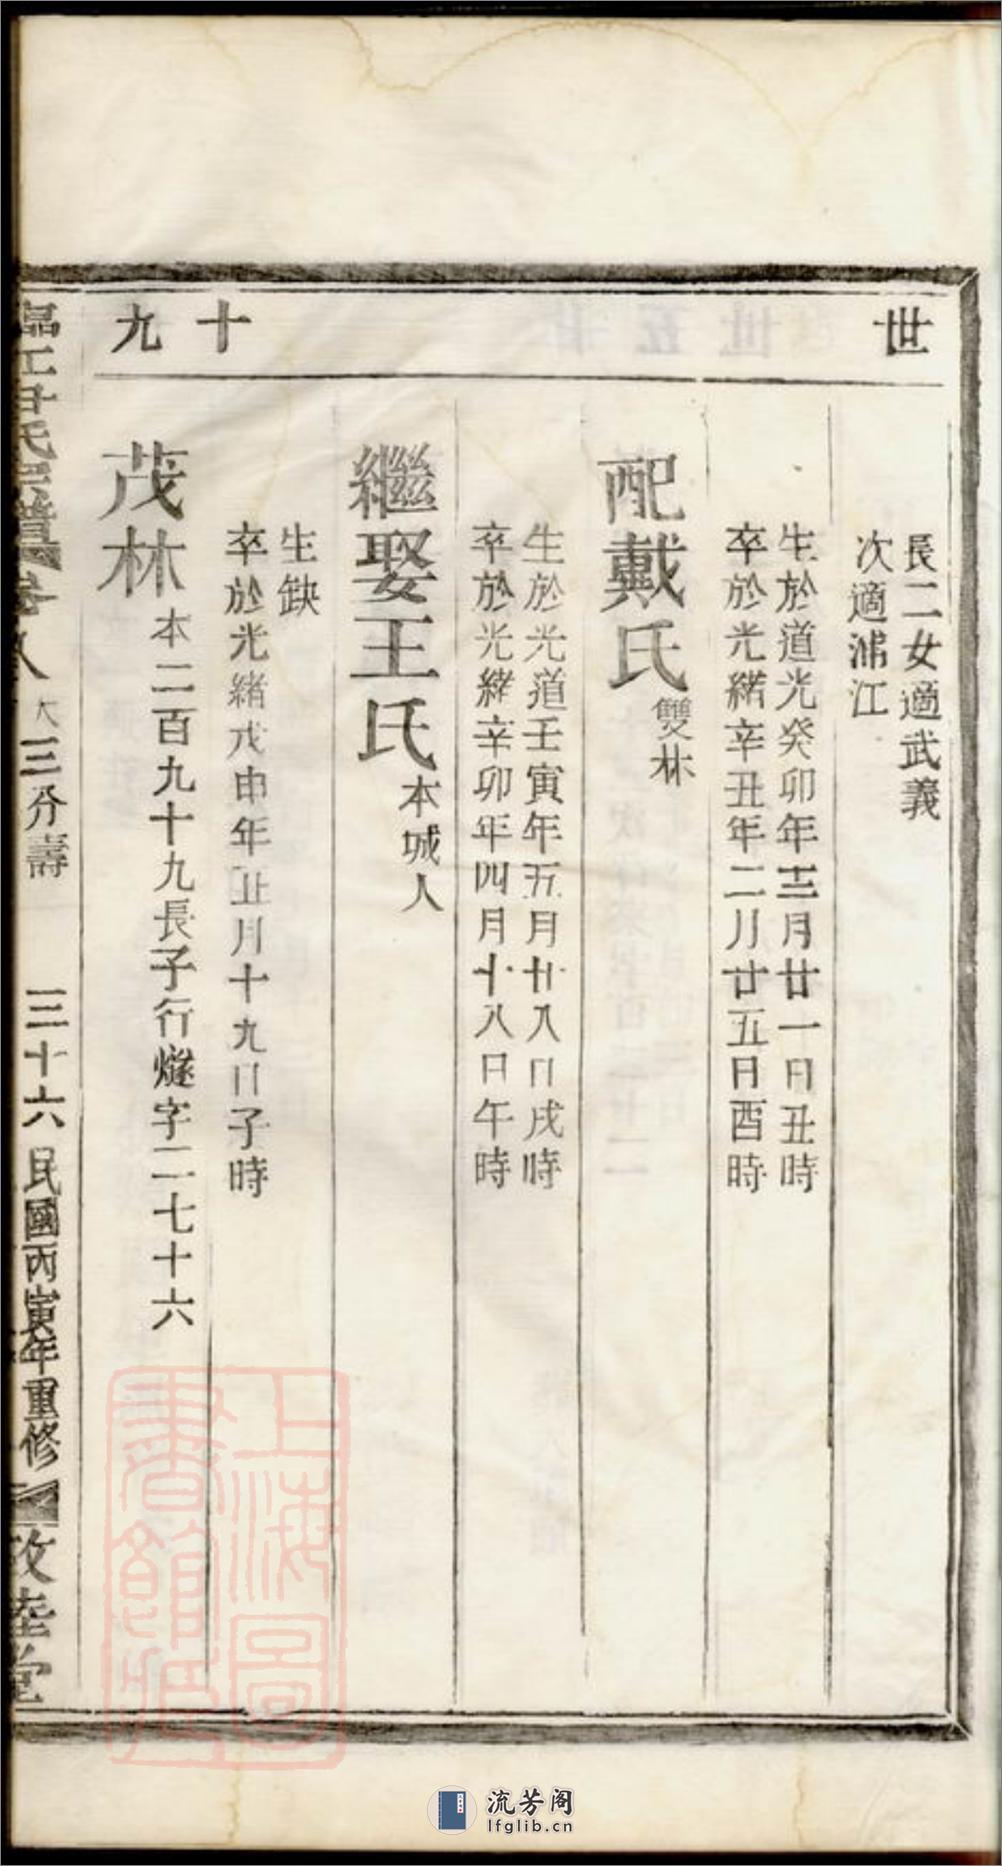 世 十九
長二女適武義
次適浦江
生於道光癸卯年十二月廿一日丑時
卒於光緒辛丑年二月廿五日酉時
配戴氏 雙林
生於光道壬寅年五月廿八日戌時
卒於光緒辛卯年四月十八日午時
繼娶王氏 本城人
生缺
卒於光緒戊申年正月十九日子時
茂林 本二百九十九長子行燧字二七十六
氏宗譜 卷八 大三分壽 三十六 民國丙寅年重修 睦堂
上海圖書館藏
流芳阁
lfglib.cn